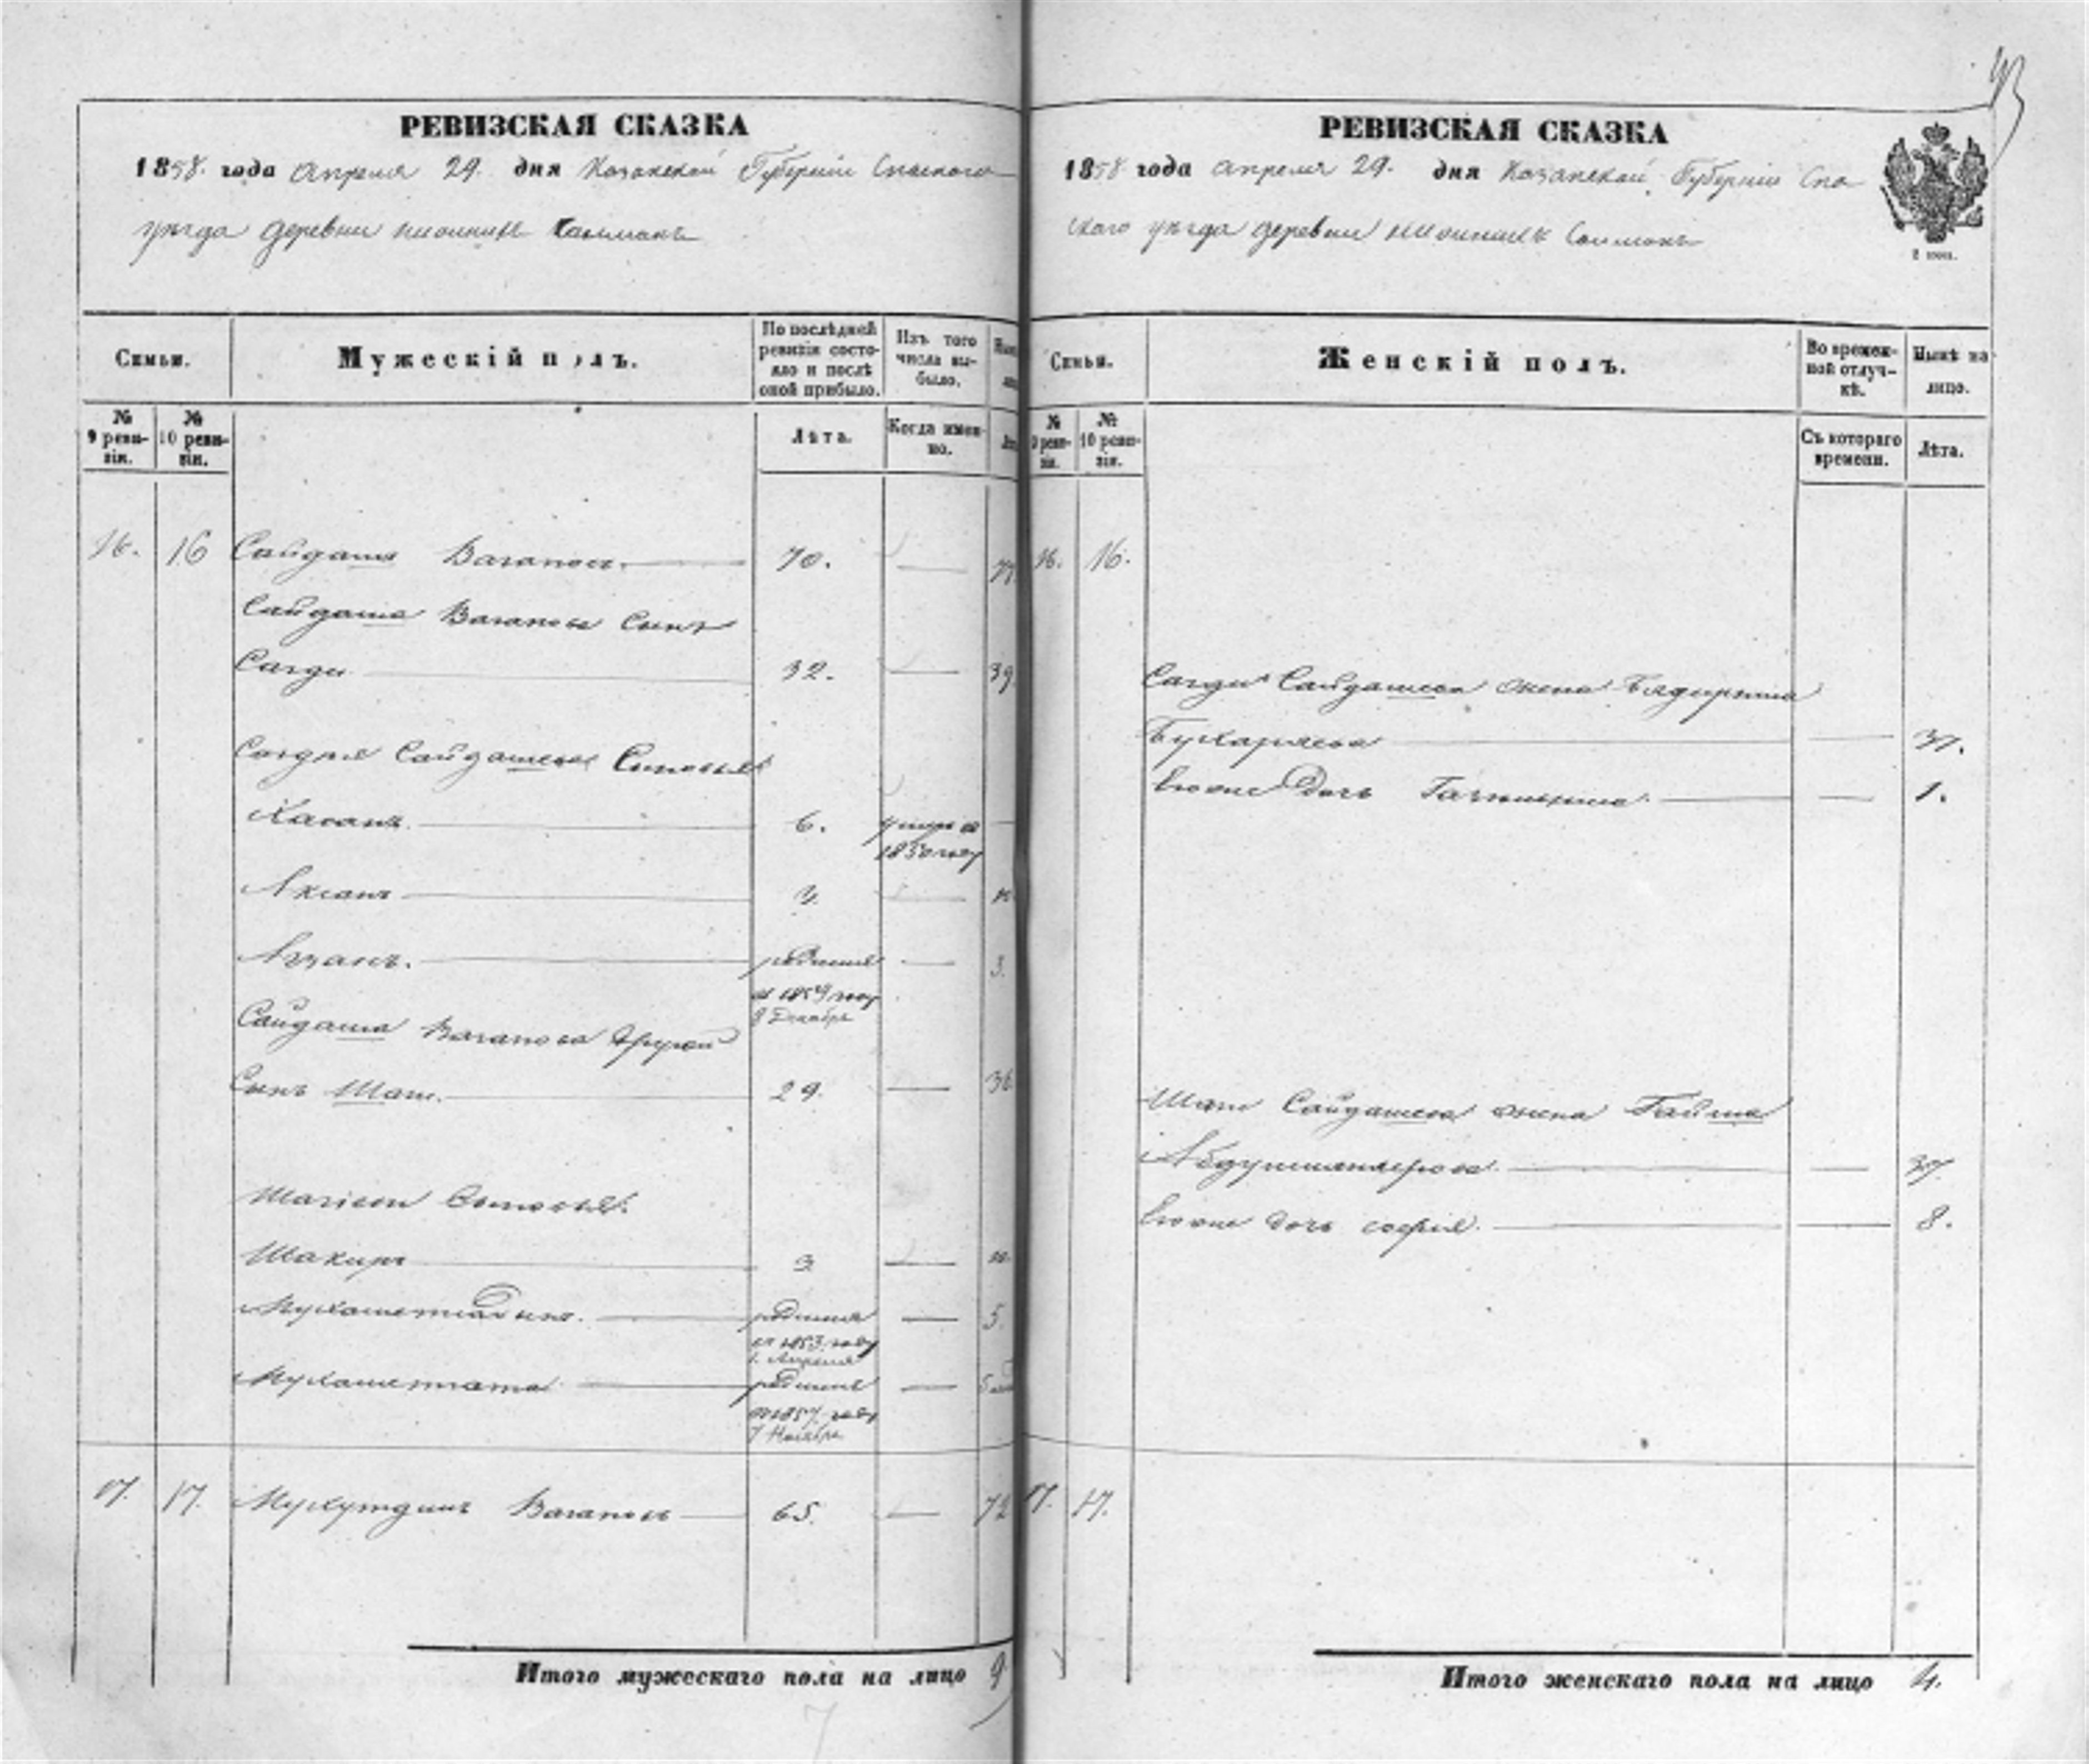 43
РЕВИЗСКАЯ СКАЗКА
1858. года Апреля 29. дня Казанской Губернии Спаского
уѣзда деревни Салманъ
Семьи.
Мужескій полъ.
По послѣдней ревизіи состояло и послѣ оной прибыло.
Изъ того числа выбыло.
№ 9 ревизіи.
№ 10 ревизіи.
Лѣта.
Когда именно.
16. 16 Сайдашъ Вагаповъ. 70. — 77
Сайдаша Вагапова Сынъ
Сагди 32. — 39
Сагдия Сайдашева Сыновья
Хасанъ 6. умеръ въ
1850 году
Аксанъ 3.
Азанъ. родился — 3.
въ 1854 году
8 Декабря
Сайдаша Вагапова другой
Сынъ Шаги. 29. — 36
Шагіевы Сыновья.
Шакиръ 3 —
родился — 5.
въ 1853 году
1. Апреля
родился —
въ 1857 году
7 Ноября
17. 17. Вагаповъ 65. — 72
Итого мужескаго пола на лицо 9
РЕВИЗСКАЯ СКАЗКА
1858 года Апреля 29. дня Казанской Губернии Спа
скаго уѣзда деревни Салманъ
2 коп.
Семьи.
Женскій полъ.
Во временной отлучкѣ.
Нынѣ на лицо.
№ 9 ревизіи.
№ 10 ревизіи.
Съ котораго времени.
Лѣта.
16. 16.
Сагди Сайдашева жена
— 37.
Ево же дочь — 1.
Шаги Сайдашева жена Гайша
— 37
Ево же дочь софія. — 8.
17. 17.
Итого женскаго пола на лицо 4.